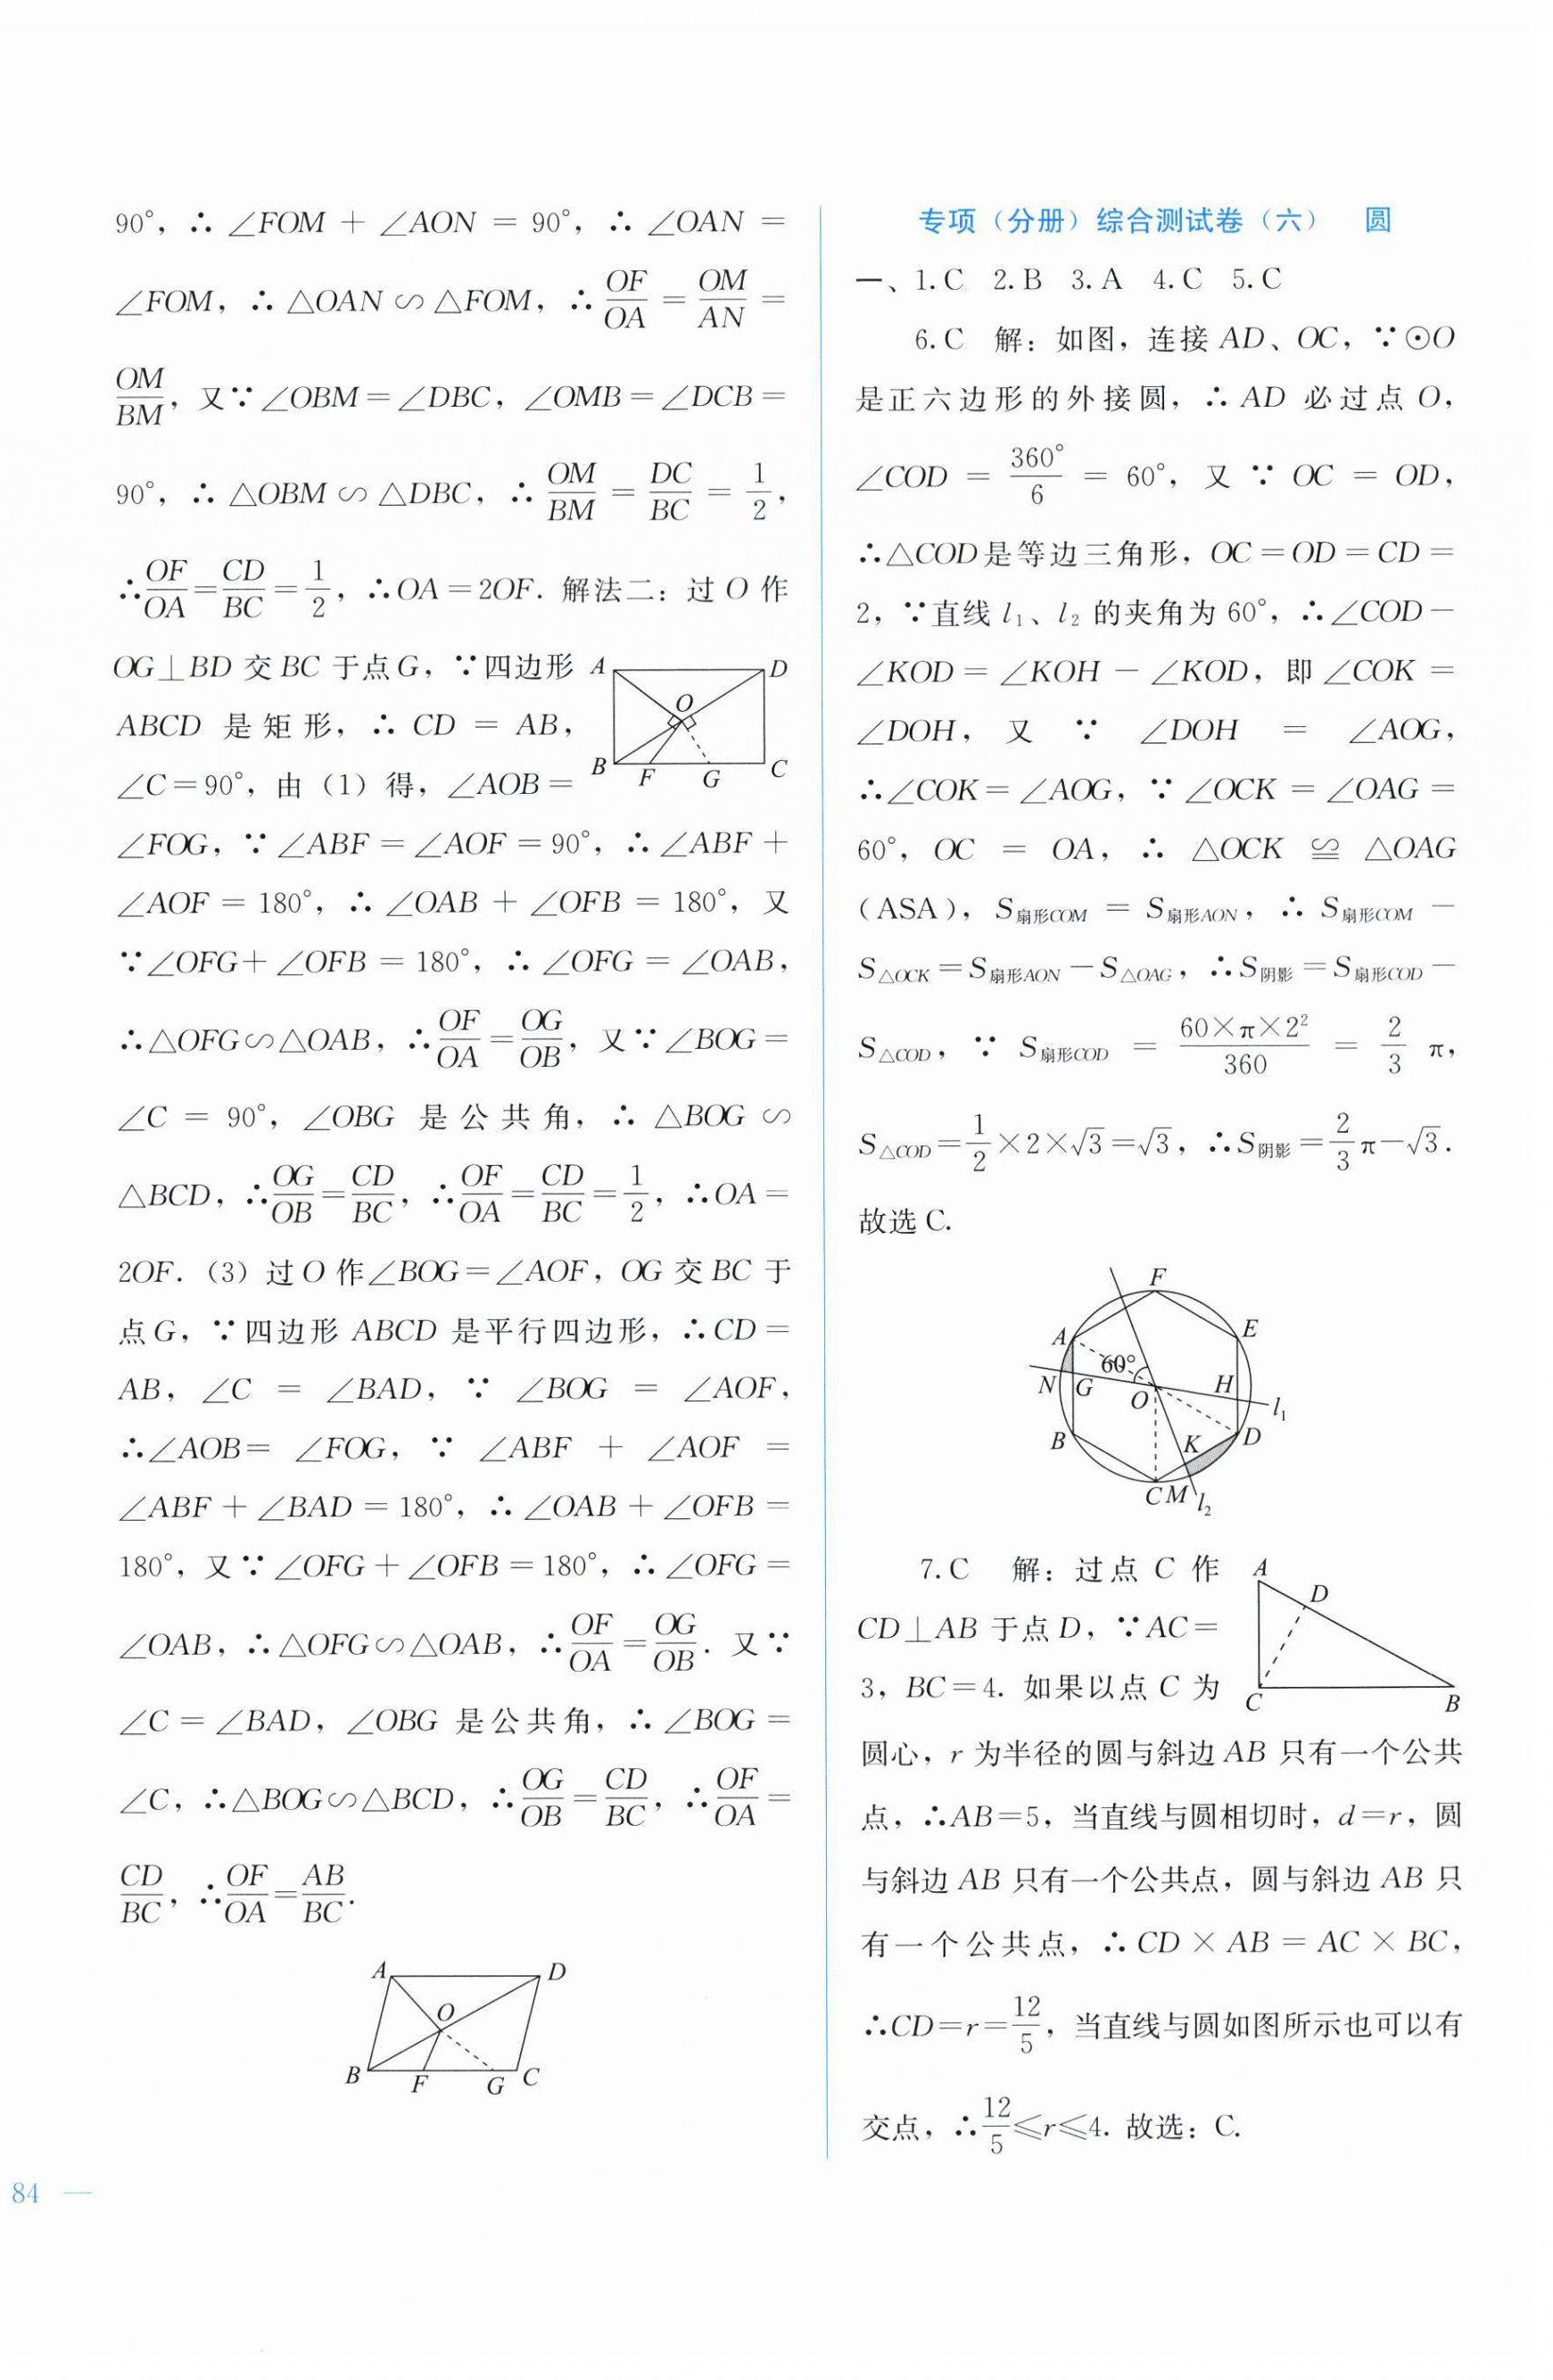 90°，∴ ∠FOM ＋ ∠AON ＝ 90°，∴ ∠OAN ＝
∠FOM，∴ △OAN ∽ △FOM，∴ OF/OA ＝ OM/AN ＝
OM/BM，又∵∠OBM＝∠DBC，∠OMB＝∠DCB＝
90°，∴ △OBM ∽ △DBC，∴ OM/BM ＝ DC/BC ＝ 1/2，
∴OF/OA＝CD/BC＝1/2，∴OA＝2OF. 解法二：过 O 作
OG⊥BD 交 BC 于点G，∵四边形
ABCD 是 矩 形，∴ CD ＝ AB，
∠C＝90°，由（1）得，∠AOB＝
A
D
O
B
F
G
C
∠FOG，∵ ∠ABF ＝ ∠AOF ＝ 90°，∴ ∠ABF ＋
∠AOF ＝ 180°，∴ ∠OAB ＋ ∠OFB ＝ 180°，又
∵∠OFG＋ ∠OFB ＝ 180°，∴ ∠OFG ＝ ∠OAB，
∴△OFG∽△OAB，∴OF/OA＝OG/OB，又∵∠BOG＝
∠C ＝ 90°，∠OBG 是 公 共 角，∴ △BOG ∽
△BCD，∴OG/OB＝CD/BC，∴OF/OA＝CD/BC＝1/2，∴OA＝
2OF.（3）过 O 作∠BOG＝∠AOF，OG 交 BC 于
点G，∵四边形 ABCD 是平行四边形，∴CD＝
AB，∠C ＝ ∠BAD，∵ ∠BOG ＝ ∠AOF，
∴∠AOB＝ ∠FOG，∵ ∠ABF ＋ ∠AOF ＝
∠ABF＋∠BAD＝180°，∴∠OAB＋∠OFB＝
180°，又∵∠OFG＋∠OFB＝180°，∴∠OFG＝
∠OAB，∴△OFG∽△OAB，∴OF/OA＝OG/OB. 又∵
∠C＝∠BAD，∠OBG 是公共角，∴∠BOG＝
∠C，∴△BOG∽△BCD，∴OG/OB＝CD/BC，∴OF/OA＝
CD/BC，∴OF/OA＝AB/BC.
A
D
O
B
F
G
C
84
专项（分册）综合测试卷（六） 圆
一、1.C 2.B 3.A 4.C 5.C
6.C 解：如图，连接 AD、OC，∵⊙O
是正六边形的外接圆，∴ AD 必过点 O，
∠COD ＝ 360°/6 ＝ 60°，又 ∵ OC ＝ OD，
∴△COD是等边三角形，OC＝OD＝CD＝
2，∵直线 l₁、l₂ 的夹角为 60°，∴∠COD－
∠KOD＝∠KOH－∠KOD，即∠COK＝
∠DOH，又 ∵ ∠DOH ＝ ∠AOG，
∴∠COK＝∠AOG，∵∠OCK＝∠OAG＝
60°，OC ＝ OA，∴ △OCK ≌ △OAG
（ASA），S扇形COM ＝ S扇形AON，∴ S扇形COM －
S△OCK＝S扇形AON－S△OAG，∴S阴影＝S扇形COD－
S△COD，∵ S扇形COD ＝ (60×π×2²)/360 ＝ 2/3 π，
S△COD＝1/2×2×√3＝√3，∴S阴影＝2/3π－√3.
故选 C.
F
A
E
60°
N
G
O
H
l₁
B
K
D
C
M
l₂
7.C 解：过点 C 作
CD⊥AB 于点 D，∵AC＝
3，BC＝4. 如果以点 C 为
A
D
C
B
圆心，r 为半径的圆与斜边 AB 只有一个公共
点，∴AB＝5，当直线与圆相切时，d＝r，圆
与斜边 AB 只有一个公共点，圆与斜边 AB 只
有一个公共点，∴CD×AB＝AC×BC，
∴CD＝r＝12/5，当直线与圆如图所示也可以有
交点，∴12/5≤r≤4. 故选：C.